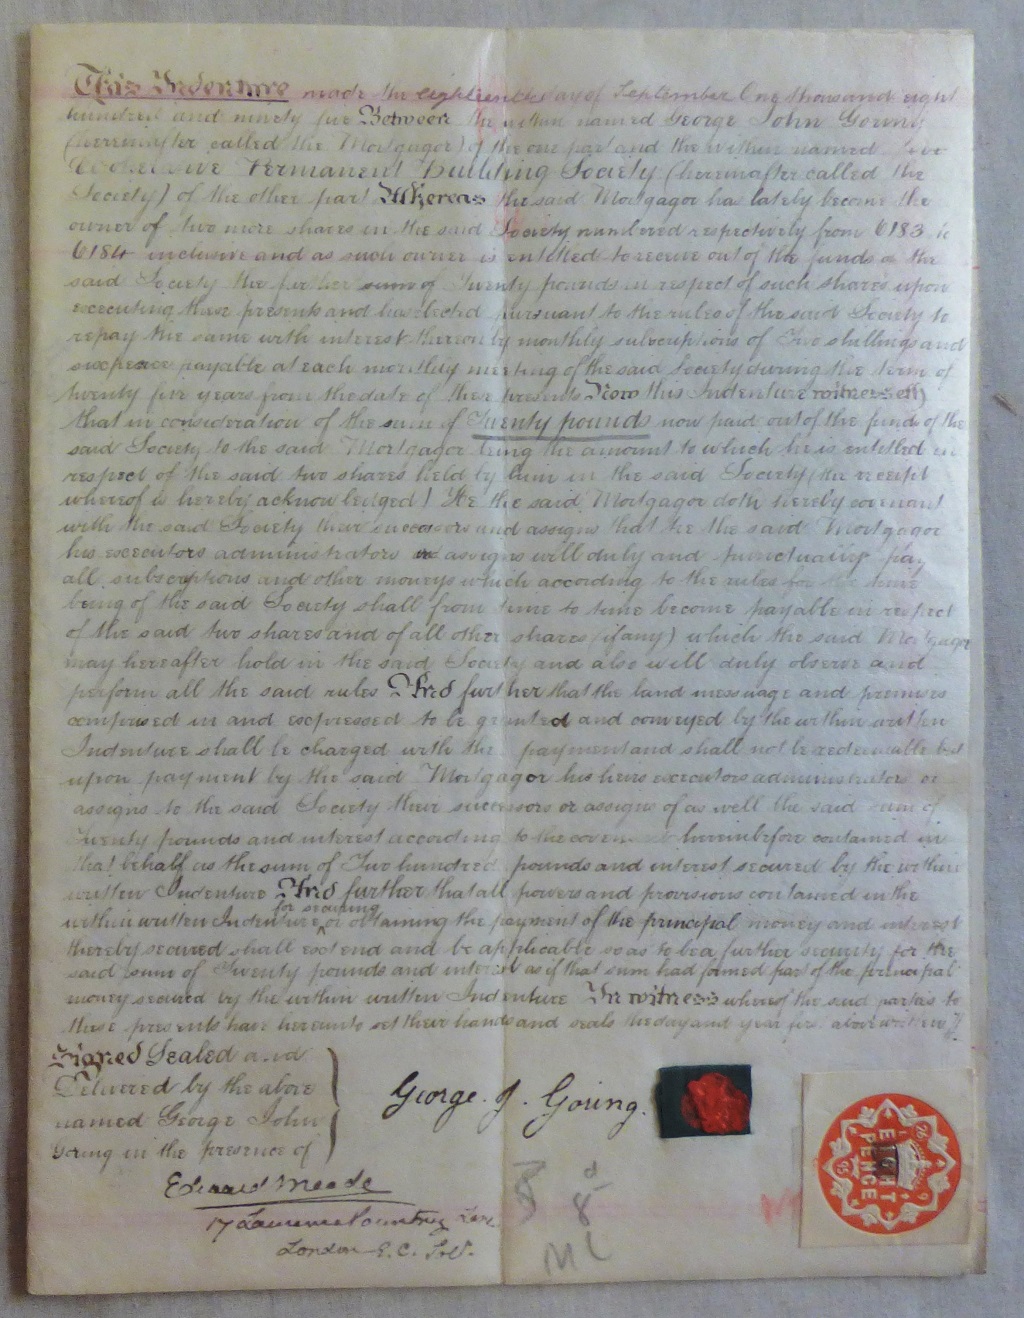 This Indenture made the eighteenth day of September One thousand eight
hundred and ninety five Between the within named George John Goring
(hereinafter called the Mortgagor) of the one part and the within named
Permanent Building Society (hereinafter called the
Society) of the other part Whereas the said Mortgagor has lately become the
owner of two more shares in the said Society numbered respectively from 6183 to
6184 inclusive and as such owner is entitled to receive out of the funds of the
said Society the further sum of Twenty pounds in respect of such shares upon
executing these presents and has elected pursuant to the rules of the said Society to
repay the same with interest thereon by monthly subscriptions of Two shillings and
sixpence payable at each monthly meeting of the said Society during the term of
twenty five years from the date of these presents Now this Indenture witnesseth
that in consideration of the sum of Twenty pounds now paid out of the funds of the
said Society to the said Mortgagor being the amount to which he is entitled in
respect of the said two shares held by him in the said Society (the receipt
whereof is hereby acknowledged) He the said Mortgagor doth hereby covenant
with the said Society their successors and assigns that he the said Mortgagor
his executors administrators or assigns will duly and punctually pay
all subscriptions and other moneys which according to the rules for the time
being of the said Society shall from time to time become payable in respect
of the said two shares and of all other shares (if any) which the said Mortgagor
may hereafter hold in the said Society and also will duly observe and
perform all the said rules And further that the land messuage and premises
comprised in and expressed to be granted and conveyed by the within written
Indenture shall be charged with the payment and shall not be redeemable but
upon payment by the said Mortgagor his heirs executors administrators or
assigns to the said Society their successors or assigns of as well the said sum of
Twenty pounds and interest according to the covenant hereinbefore contained in
that behalf as the sum of Two hundred pounds and interest secured by the within
written Indenture And further that all powers and provisions contained in the
within written Indenture for securing or obtaining the payment of the principal money and interest
thereby secured shall extend and be applicable so as to be a further security for the
said sum of Twenty pounds and interest as if that sum had formed part of the principal
money secured by the within written Indenture In witness whereof the said parties to
these presents have hereunto set their hands and seals the day and year first above written
Signed Sealed and
Delivered by the above
named George John
Goring in the presence of
George. J. Goring.
Edward Meade
17 Laurence Pountney Lane
London E.C. Solr.
8d
8
ML
EIGHT
PENCE
26
9
95